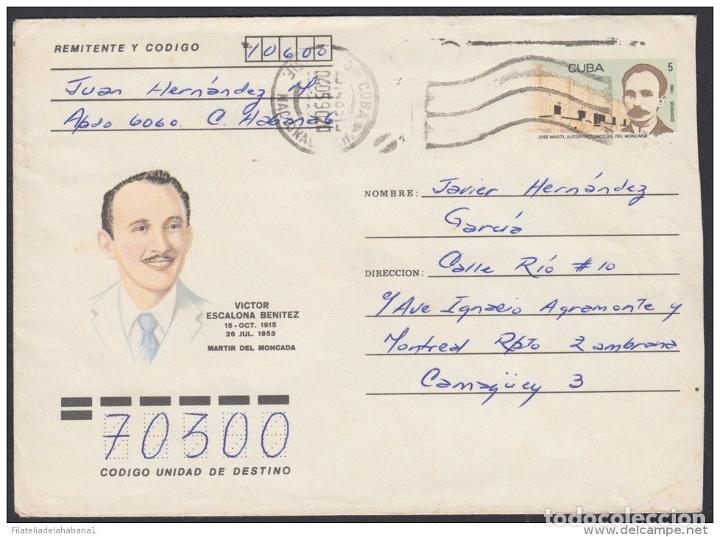 REMITENTE Y CODIGO 10600
Juan Hernández M.
Apdo 6060. C. Habana 6
CUBA
NACIONAL
CUBA 5
CORREOS
JOSE MARTI, AUTOR INTELECTUAL DEL MONCADA
NOMBRE: Javier Hernández
García
DIRECCION: Calle Río #10
e/Ave Ignacio Agramonte y
Montreal Rpto Zambrana
Camagüey 3
VICTOR
ESCALONA BENITEZ
15-OCT. 1915
26 JUL. 1953
MARTIR DEL MONCADA
70300
CODIGO UNIDAD DE DESTINO
Filateliadelahabana1
todocoleccion